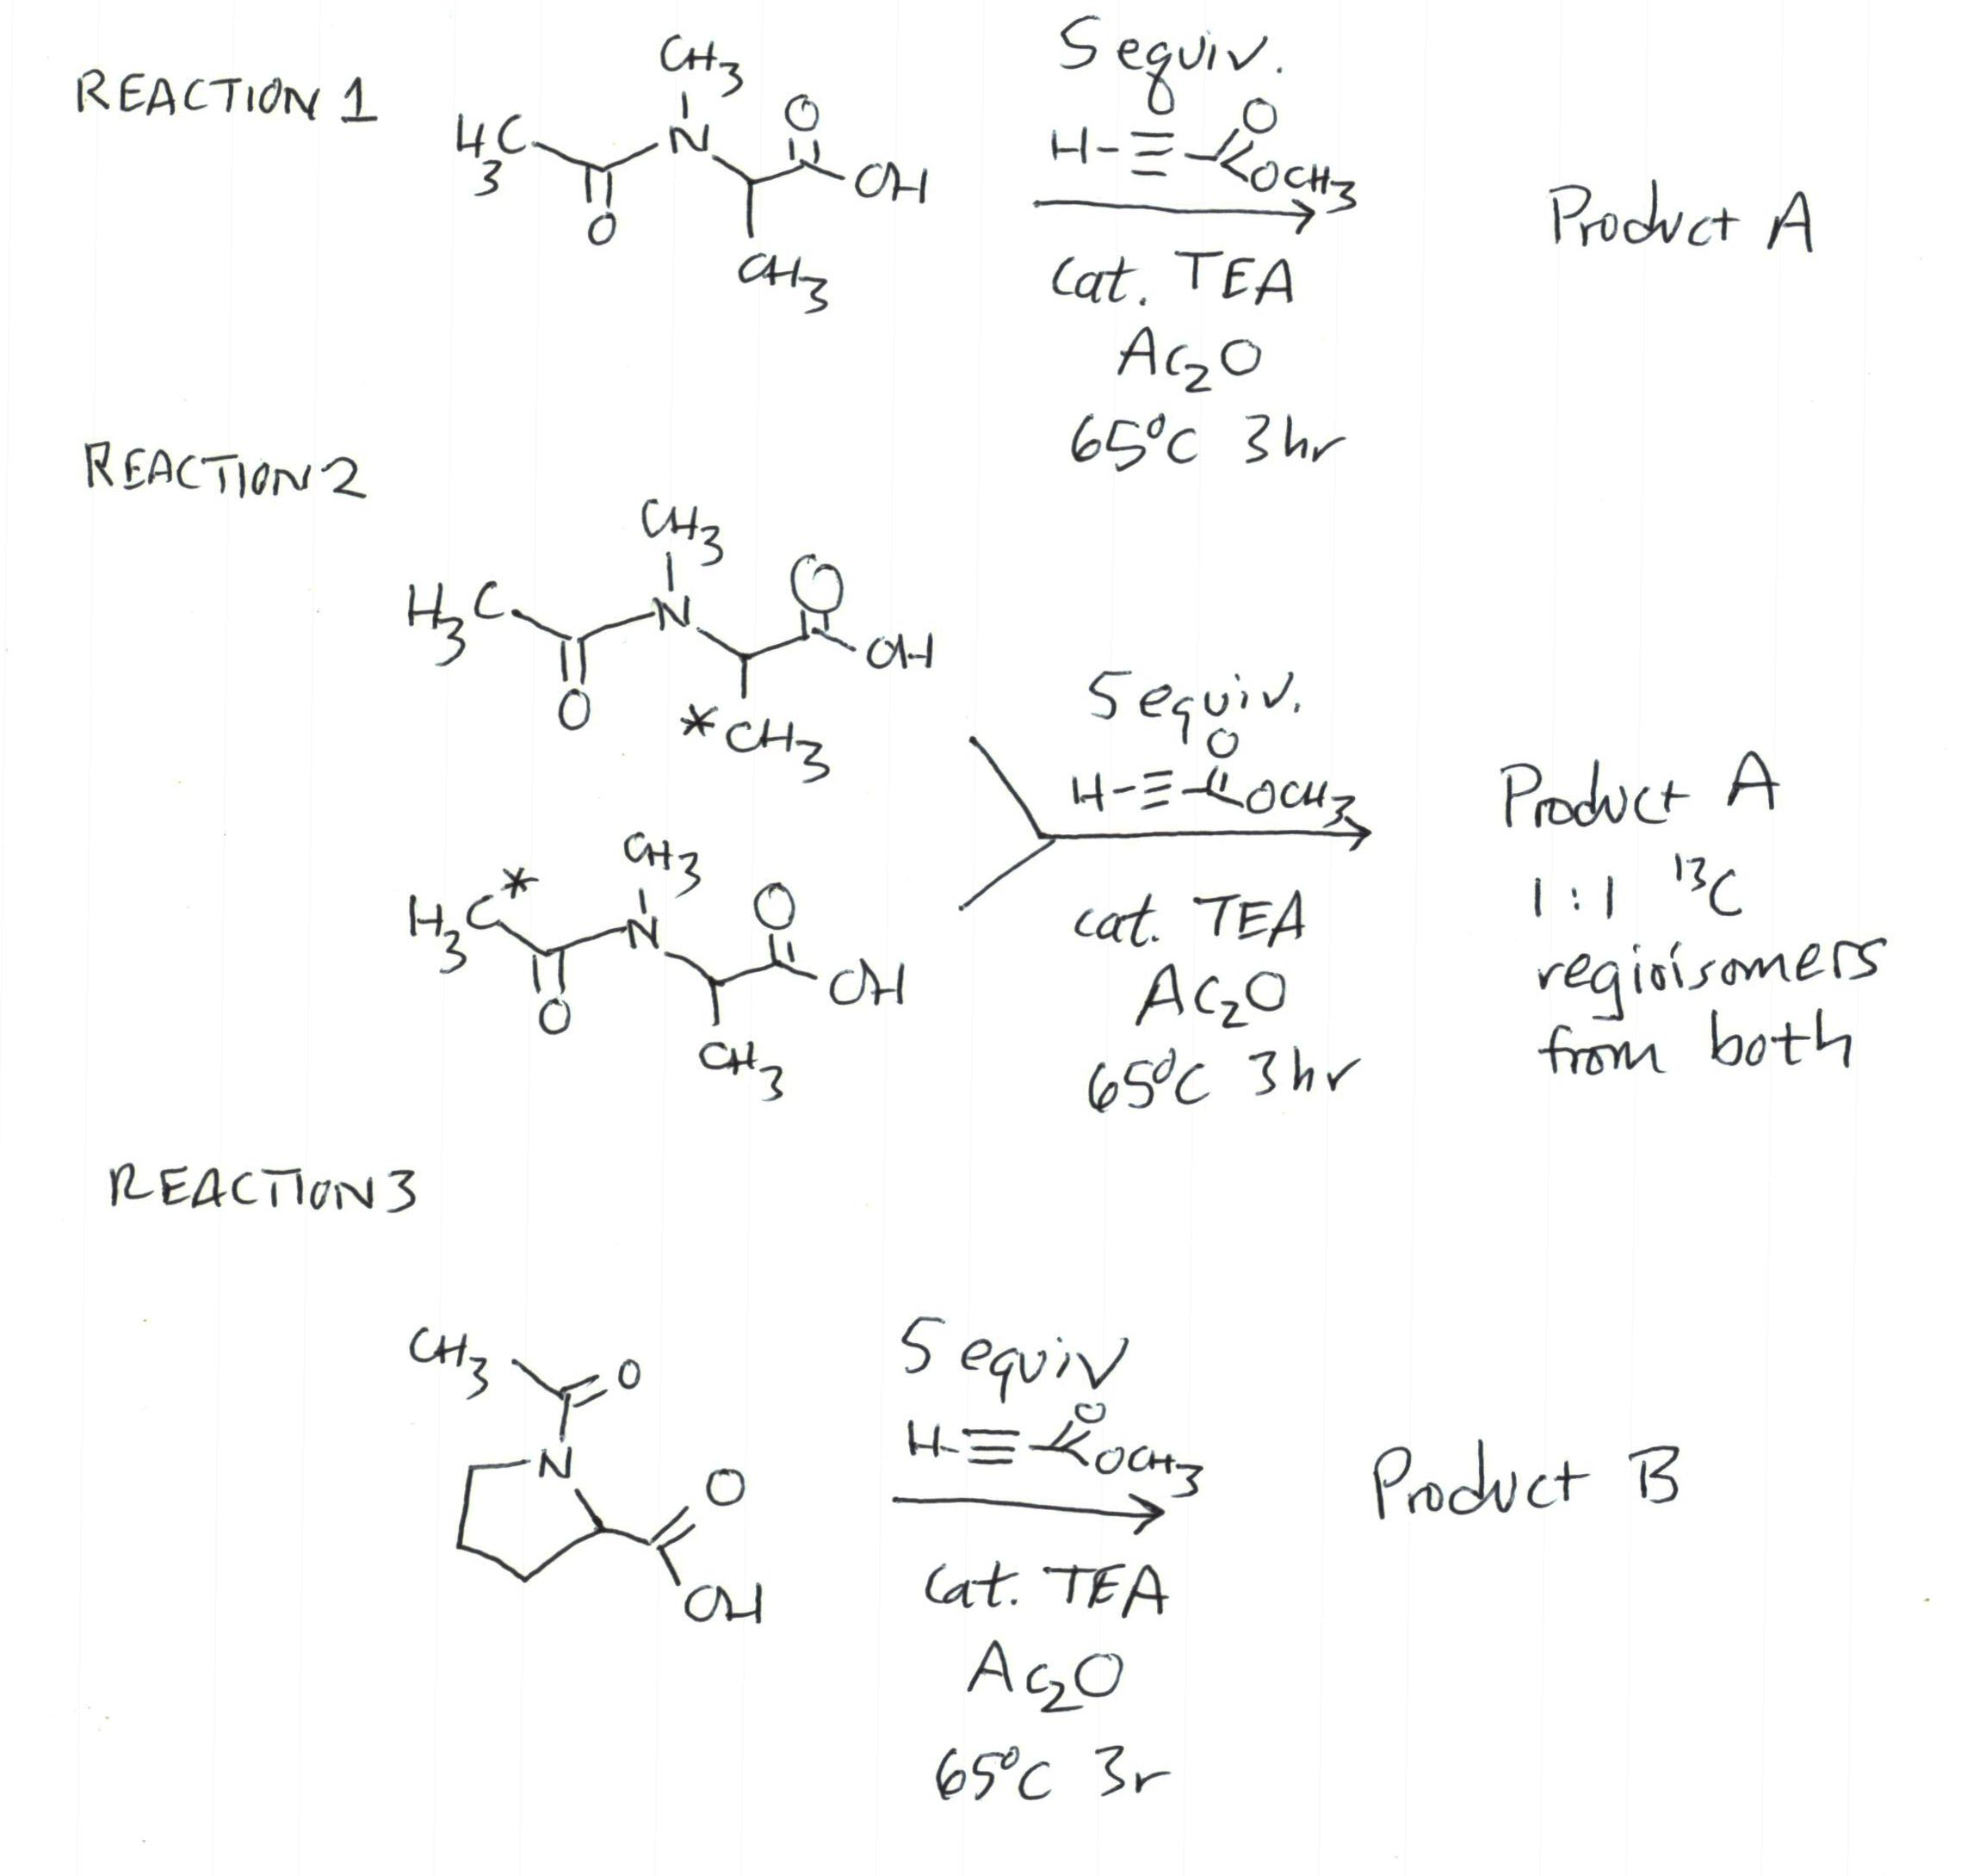 REACTION 1
CH3
H3C
N
O
OH
O
CH3
5 equiv.
O
H-≡
OCH3
Cat. TEA
Ac2O
65°C 3hr
Product A
REACTION 2
CH3
H3C
N
O
OH
O
*CH3
H3C*
CH3
N
O
OH
O
CH3
5 equiv.
O
H-≡
OCH3
cat. TEA
Ac2O
65°C 3hr
Product A
1:1 13C
regioisomers
from both
REACTION 3
CH3
O
N
O
OH
5 equiv
O
H-≡
OCH3
Cat. TEA
Ac2O
65°C 3r
Product B